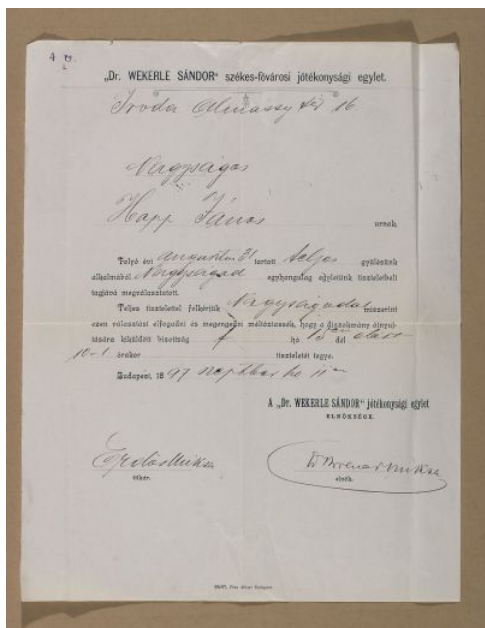 „Dr. WEKERLE SÁNDOR“ székes-fővárosi jótékonysági egylet.
Iroda Almássy tér 16.
Nagyságos
Happ János urnak.
Folyó évi augusztus 31 tartott teljes gyűlésünk
alkalmából Nagyságod egyhangulag egyletünk tiszteletbeli
tagjává megválasztatott.
Teljes tisztelettel felkérjük Nagyságodat miszerint
ezen választást elfogadni és megengedni méltóztassék, hogy a diszokmány átnyuj-
tására kiküldött bizottság f hó 15 dél előtt
10-1 órakor tiszteletét tegye.
Budapest, 1897 szeptember hó 11
A „Dr. WEKERLE SÁNDOR“ jótékonysági egylet
ELNÖKSÉGE.
Erdős Miksa
titkár.
Dr Brener Miksa
elnök.